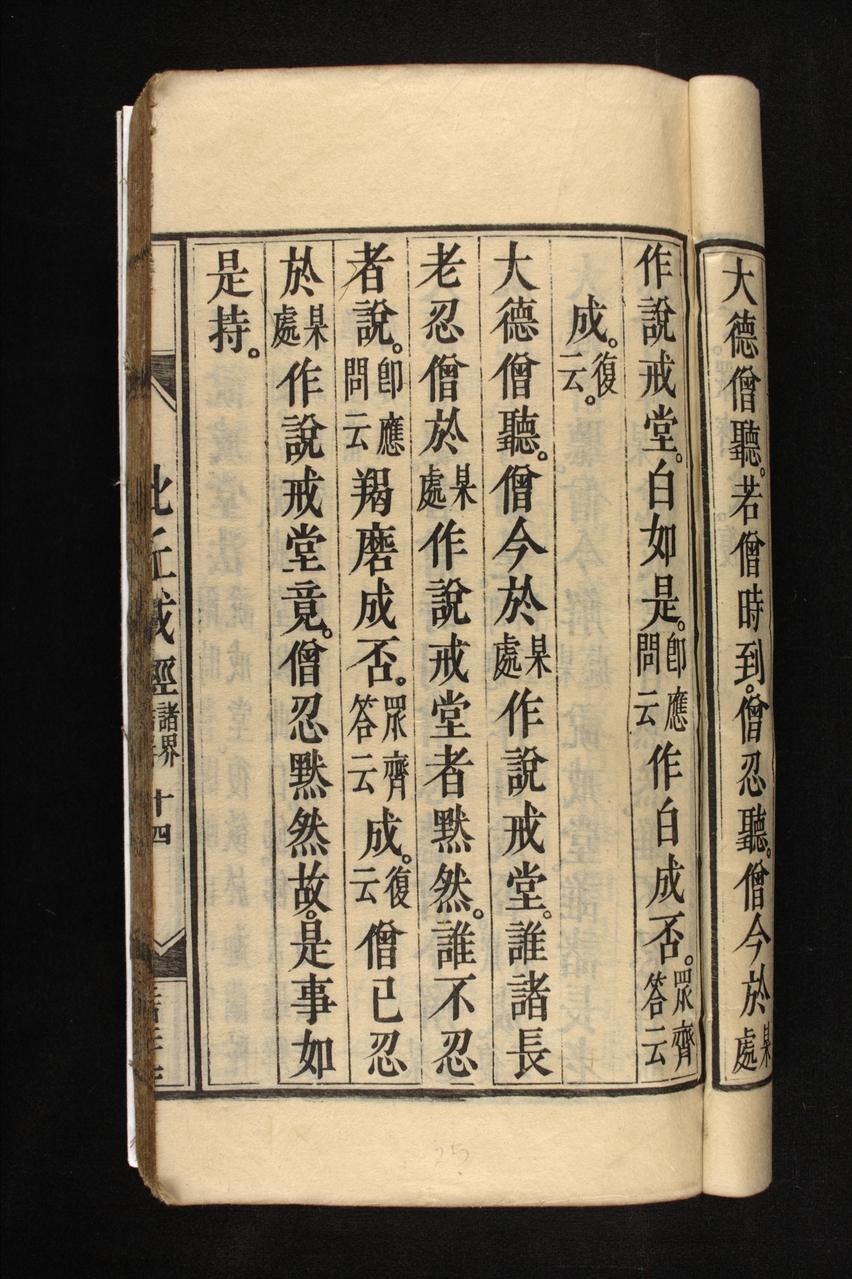 大德僧聽。若僧時到。僧忍聽。僧今於某處
作說戒堂。白如是。卽應問云作白成否。眾齊答云
成。復云。
大德僧聽。僧今於某處作說戒堂。誰諸長
老忍僧於某處作說戒堂者默然。誰不忍
者說。卽應問云羯磨成否。眾齊答云成。復云僧已忍
於某處作說戒堂竟。僧忍默然故。是事如
是持。
比丘戒經 諸界 十四
25